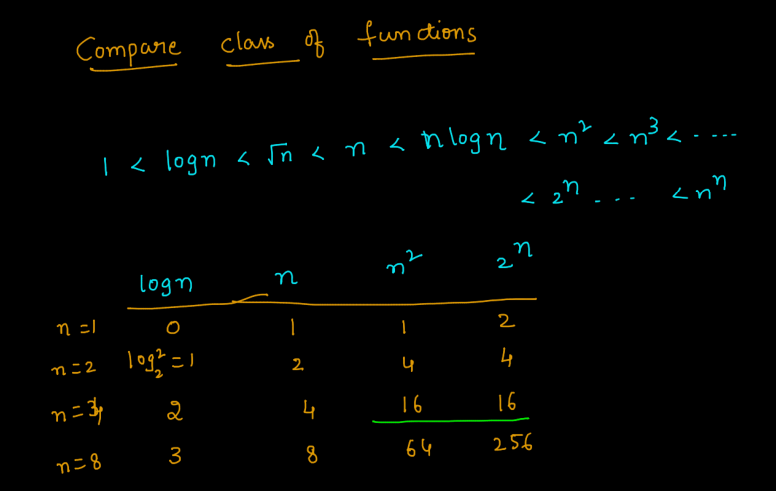 Compare class of functions
1 < logn < √n < n < nlogn < n² < n³ < ....
< 2ⁿ ... < nⁿ
logn n n² 2ⁿ
n=1 0 1 1 2
n=2 log₂²=1 2 4 4
n=4 2 4 16 16
n=8 3 8 64 256